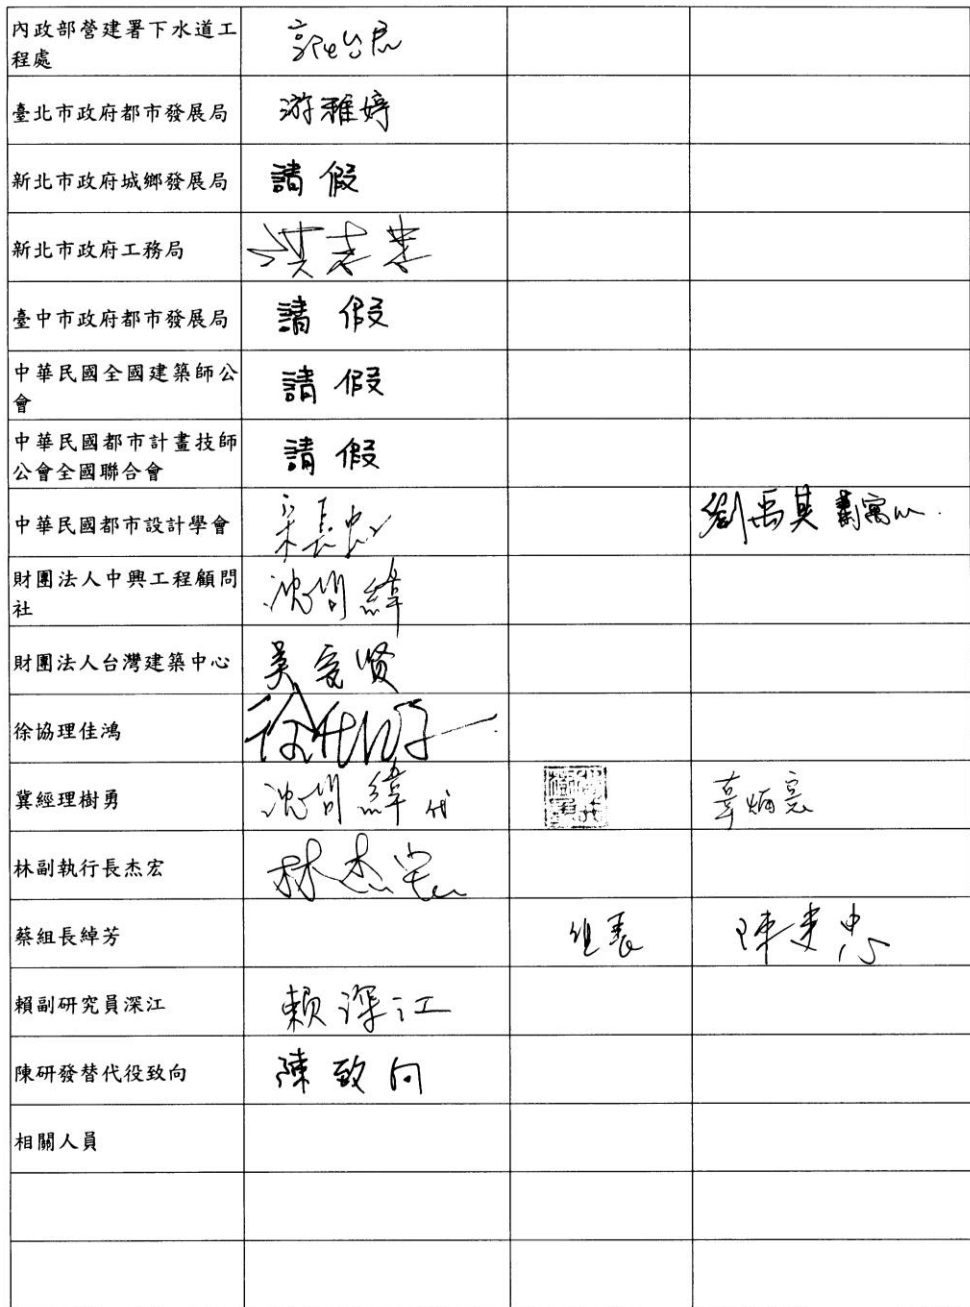 內政部營建署下水道工
程處
臺北市政府都市發展局 游雅婷
新北市政府城鄉發展局 請假
新北市政府工務局
臺中市政府都市發展局 請假
中華民國全國建築師公
會 請假
中華民國都市計畫技師
公會全國聯合會 請假
中華民國都市設計學會 宋長忠
財團法人中興工程顧問
社 沈問緯
財團法人台灣建築中心 吳 賢
徐協理佳鴻
冀經理樹勇 沈問緯代
林副執行長杰宏 林杰宏
蔡組長綽芳 組長 陳建忠
賴副研究員深江 賴深江
陳研發替代役致向 陳致向
相關人員